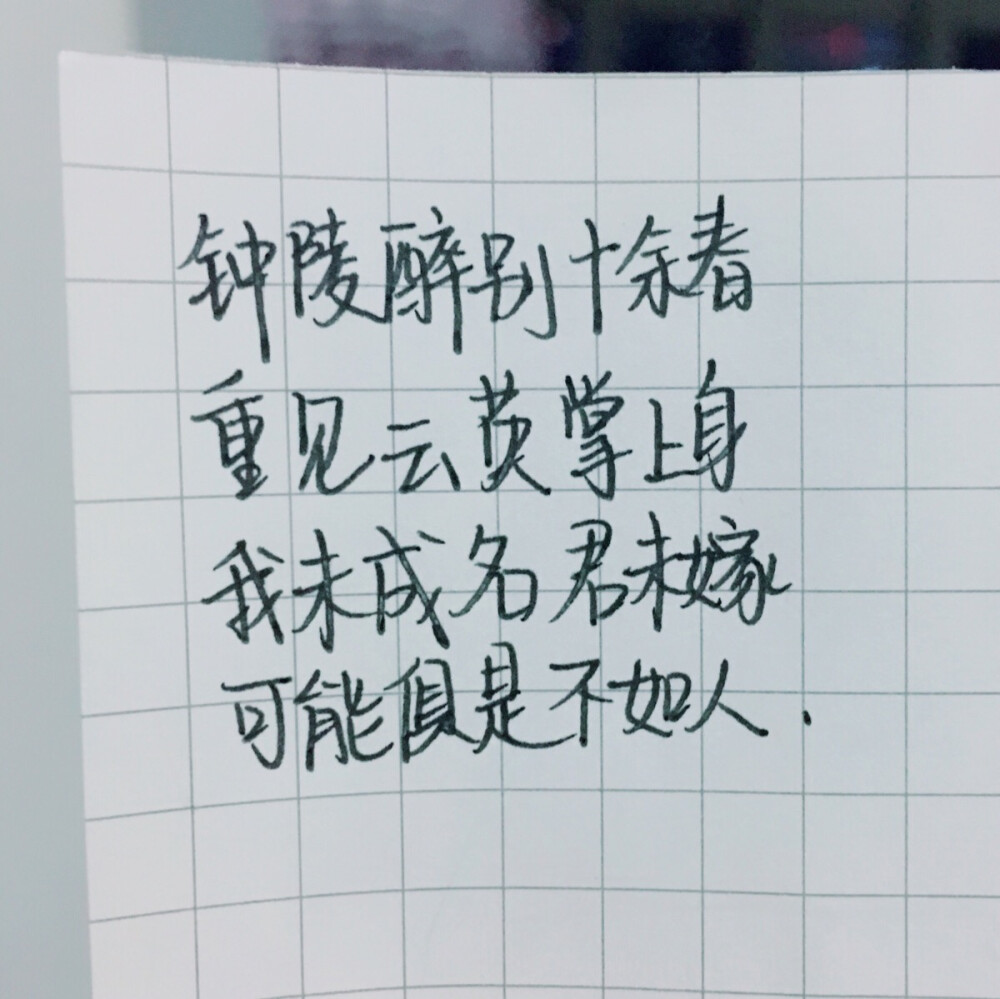 钟陵醉别十余春
重见云英掌上身
我未成名君未嫁
可能俱是不如人.